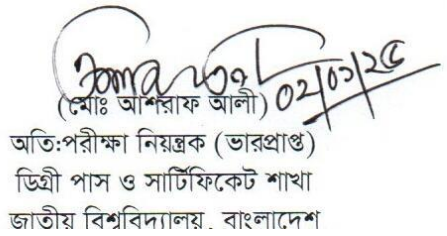 ০২/০১/২৫
(মোঃ আশরাফ আলী)
অতি:পরীক্ষা নিয়ন্ত্রক (ভারপ্রাপ্ত)
ডিগ্রী পাস ও সার্টিফিকেট শাখা
জাতীয় বিশ্ববিদ্যালয়, বাংলাদেশ